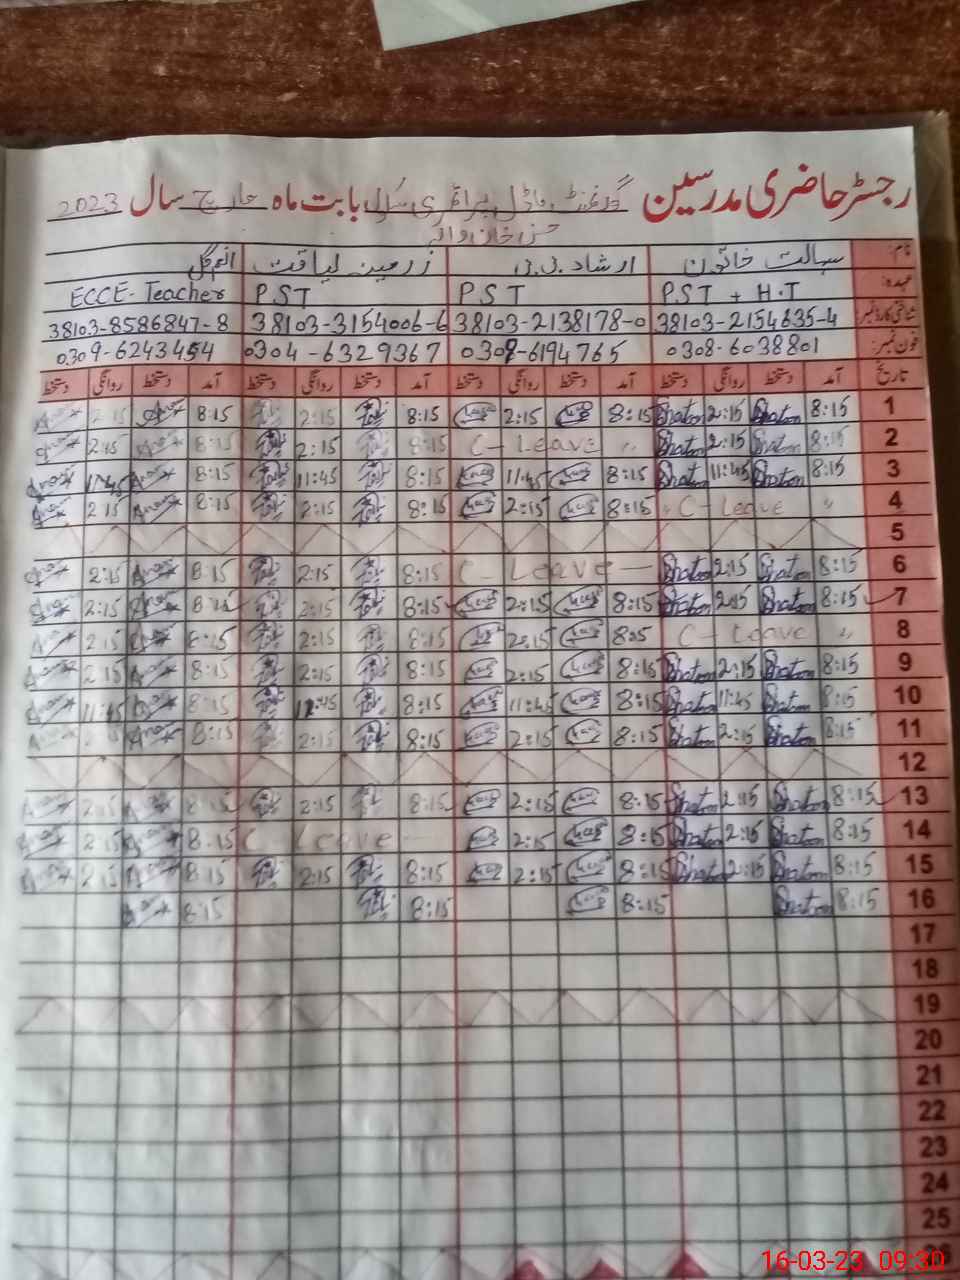 رجسٹر حاضری مدرسین گورنمنٹ ماڈل پرائمری سکول بابت ماہ مارچ سال 2023
نام: رسالت خاتون ارشاد بی بی زرمینہ لیاقت انعم گل
عہدہ: P.S.T + H.T P S T P.S.T ECCE-Teacher
شناختی کارڈ نمبر 38103-2154635-4 38103-2138178-0 38103-3154006-6 38103-8586847-8
فون نمبر: 0308-6038801 0308-6194765 0304-6329367 0309-6243454
تاریخ آمد دستخط روانگی دستخط آمد دستخط روانگی دستخط آمد دستخط روانگی دستخط آمد دستخط روانگی دستخط
1 8:15 2:15 8:15 2:15 8:15 2:15 8:15 2:15
2 8:15 2:15 C-Leave 8:15 2:15 8:15 2:15
3 8:15 11:45 8:15 11:45 8:15 11:45 8:15 11:45
4 C-Leave 8:15 2:15 8:15 2:15 8:15 2:15
5
6 8:15 2:15 C-Leave 8:15 2:15 8:15 2:15
7 8:15 2:15 8:15 2:15 8:15 2:15 8:15 2:15
8 C-Leave 8:15 2:15 8:15 2:15 8:15 2:15
9 8:15 2:15 8:15 2:15 8:15 2:15 8:15 2:15
10 8:15 11:45 8:15 11:45 8:15 11:45 8:15 11:45
11 8:15 2:15 8:15 2:15 8:15 2:15 8:15
12
13 8:15 2:15 8:15 2:15 8:15 2:15 8:15 2:15
14 8:15 2:15 8:15 2:15 C Leave 8:15 2:15
15 8:15 2:15 8:15 2:15 8:15 2:15 8:15 2:15
16 8:15 8:15 8:15 8:15
17
18
19
20
21
22
23
24
25
26
16-03-23 09:30